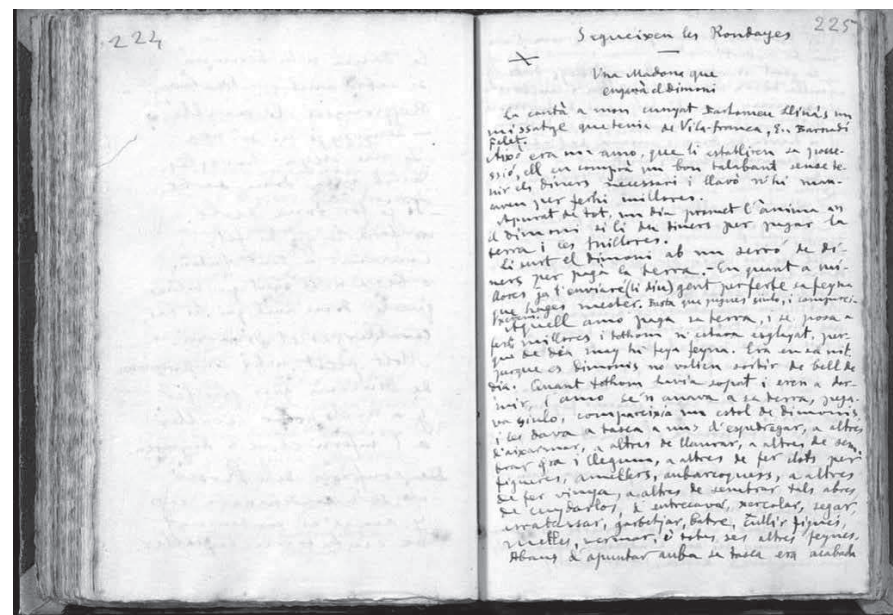 224
225
Segueixen les Rondayes
Una Madona que
enganà el Dimoni
La contà a mon cunyat Bartomeu Llinàs un
missatge que tenia de Vila-franca, En Barnadí
Això era un amo, que li establiren sa posse-
ssió, ell en comprà un bon talabant sense te-
nir els diners necessari i llavò n'hi man-
caven per ferhi millores.
Apurat de tot, un dia promet l'ànima an
el dimoni si li du diners per pagar la
terra i les millores.
Li surt el dimoni ab un serró de di-
ners per pagá la terra. - En quant a mi-
llores ja t'enviaré (li diu) gent per ferte sa feyna
que hages mester. Basta que pegues siulo, i compareixerem
Aquell amo paga sa terra, i se posa a
ferhi millores i tothom n'estava esglayat, per-
que de dia may hi feya feyna. Era en sa nit,
perque es dimonis no volien sortir de bell de
dia. Quant tothom havia sopat i eren a dor-
mir, l'amo se'n anava a sa terra, pega-
va siulo, compareixia un estol de dimonis,
i les dava a tasca a uns d'espedregar, a altres
d'aixarmar, a altres de llaurar, a altres de sem-
brar gra i llegum, a altres de fer clots per
figueres, amellers, aubarcoquers, a altres
de fer vinya, a altres de sembrar tals abres,
de cuydarlos, d'entrecavar, xercolar, segar,
garbetjar, batre, cullir figues,
melles, vermar, i totes ses altres feynes.
Abans d'apuntar auba sa tasca era acabada